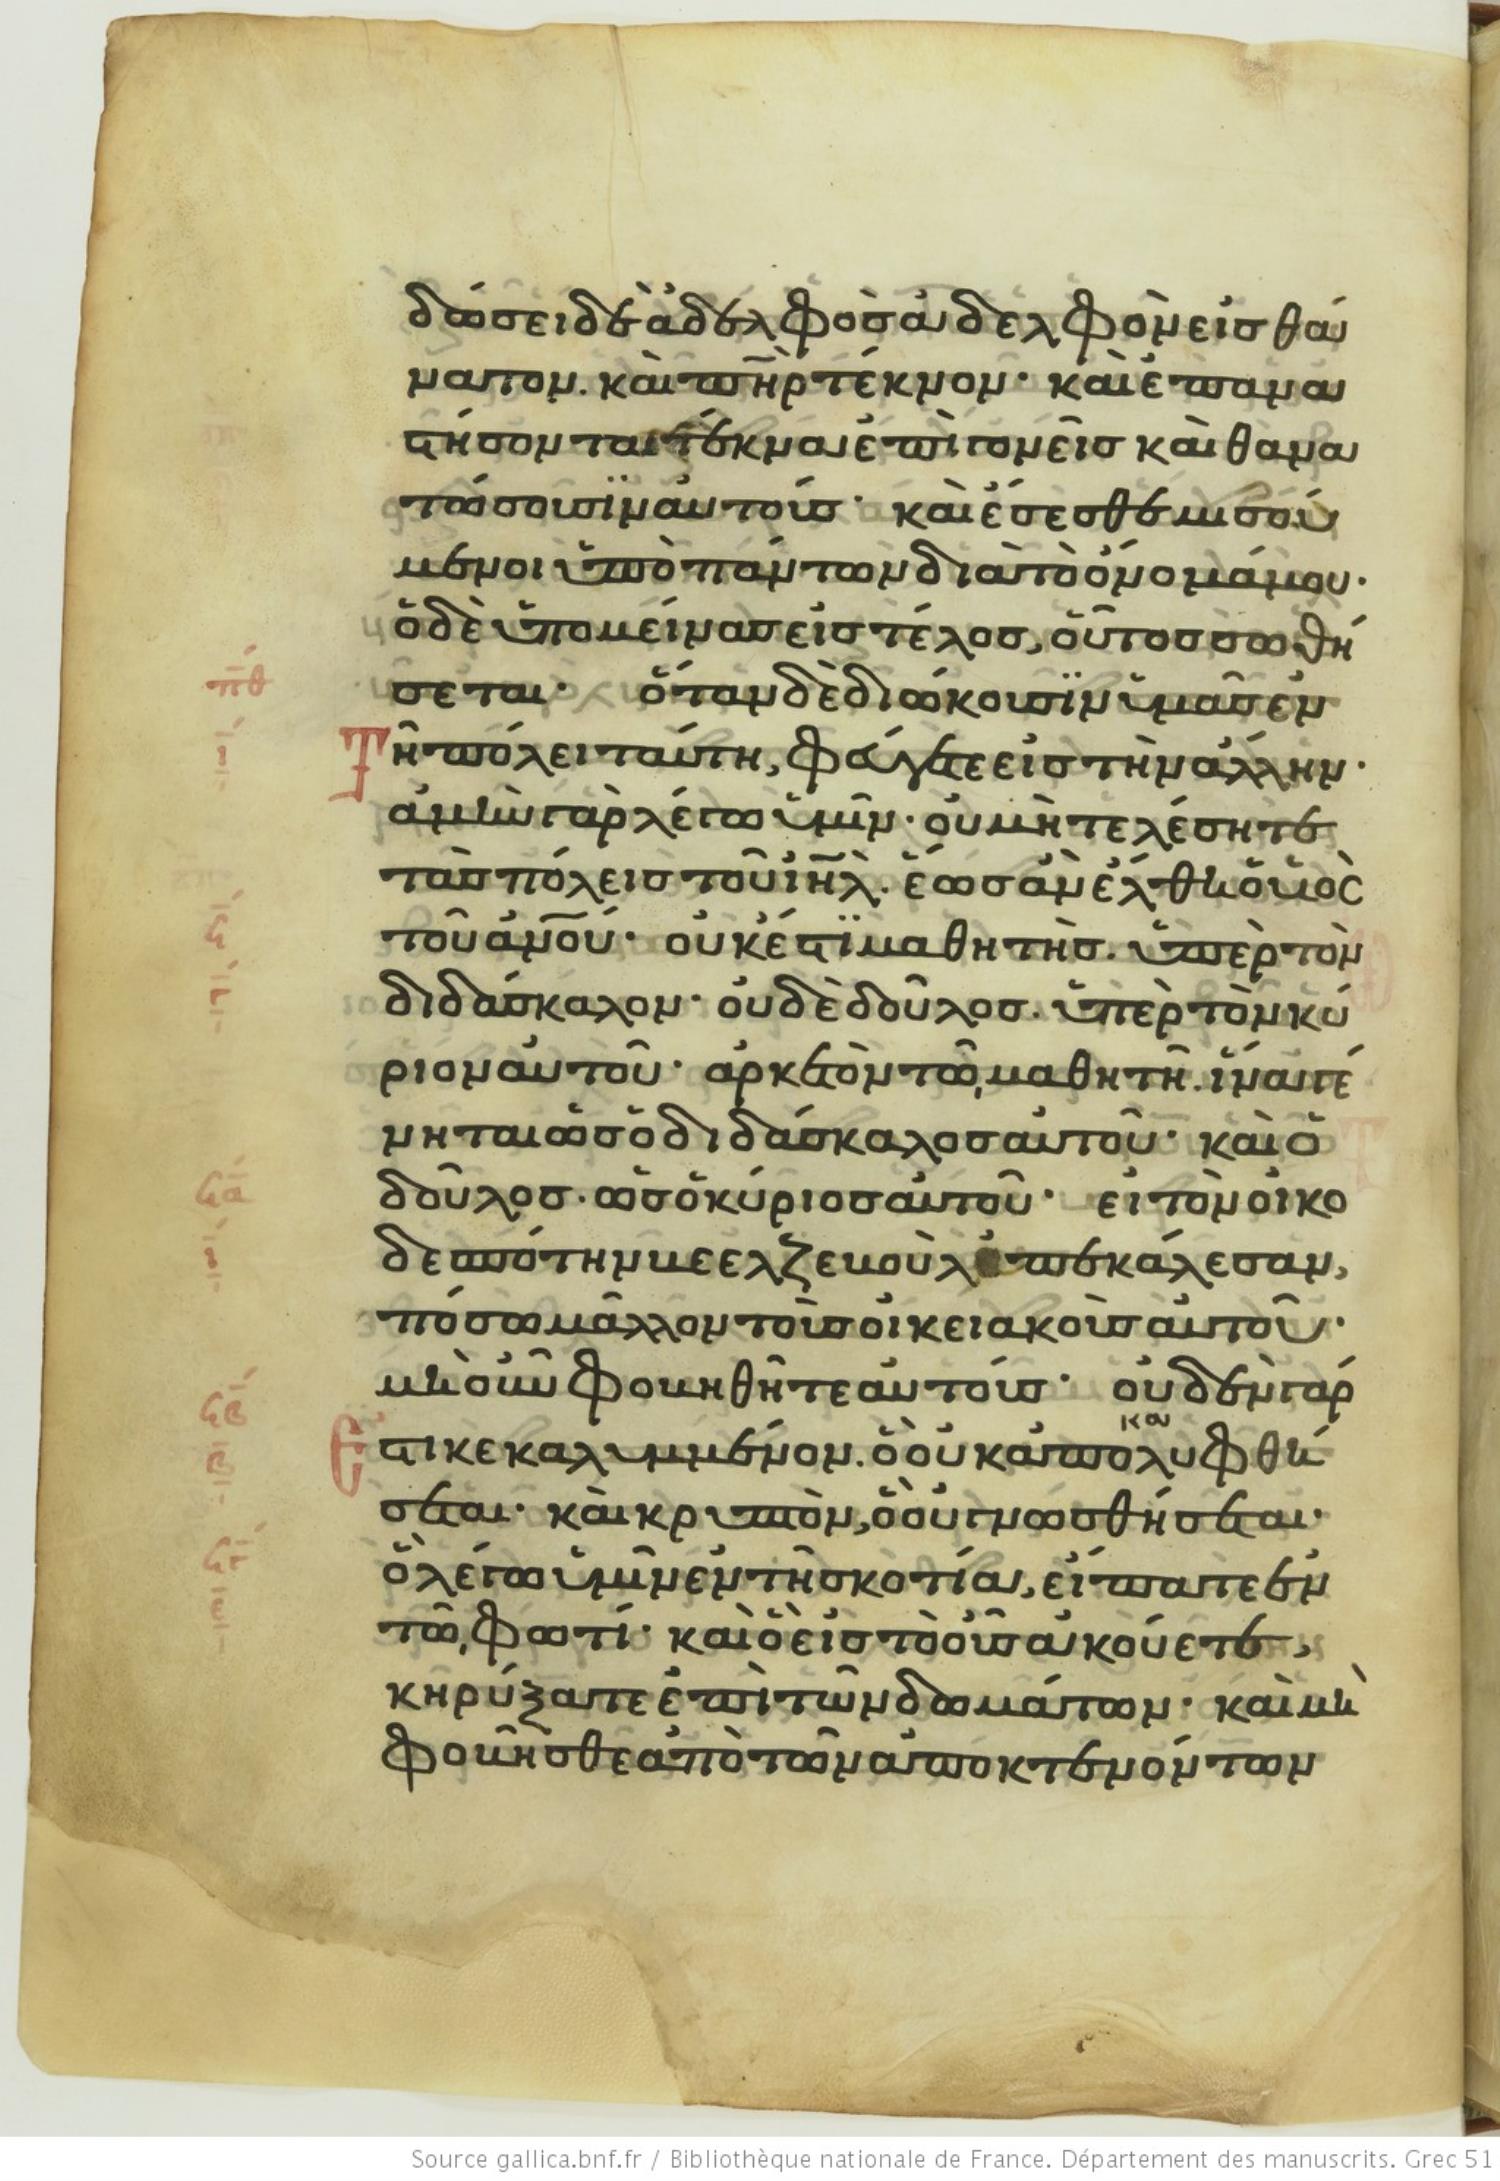 δώσει δὲ ἀδελφὸς ἀδελφὸν εἰς θά
νατον. καὶ πὴρ τέκνον· καὶ ἐπανα
στήσονται τέκνα ἐπὶ γονεῖς καὶ θανα
τώσουσϊν αὐτούς· καὶ ἔσεσθε μισού
μενοι ὑπὸ πάντων διὰ τὸ ὄνομά μου·
ὁ δὲ ὑπομείνας εἰς τέλος, οὗτος σωθή
σεται· ὅταν δὲ διώκουσϊν ὑμᾶς ἐν
πθ
Τῆ πόλει ταύτη, φεύγετε εἰς τὴν ἄλλην·
ἀμὴν γὰρ λέγω ὑμῖν· οὐ μὴ τελέσητε
τὰς πόλεις τοῦ ἰηλ. ἕως ἂν ἔλθη ὁ υἱὸς
τοῦ ἀνου· οὐκ ἔστϊ μαθητὴς. ὑπὲρ τὸν
διδάσκαλον· οὐδὲ δοῦλος. ὑπὲρ τὸν κύ
ριον αὐτοῦ· ἀρκετὸν τῶ, μαθητῆ. ἵνα γέ
νηται ὡς ὁ διδάσκαλος αὐτοῦ· καὶ ὁ
δοῦλος. ὡς ὁ κύριος αὐτοῦ· εἰ τὸν οἰκο
δεσπότην βεελζεβοὺλ ἐπεκάλεσαν,
πόσω μᾶλλον τοὺς οἰκειακοὺς αὐτοῦ·
μὴ οὖν φοβηθῆτε αὐτούς· οὐδὲν γάρ
Ἐστι κεκαλυμμένον. ὃ οὐκ ἀποκαλυφθή
σεται· καὶ κρυπτὸν, ὃ οὐ γνωσθήσεται·
ὃ λέγω ὑμῖν ἐν τῆ σκοτία, εἴπατε ἐν
τῶ, φωτί· καὶ ὃ εἰς τὸ οὖς ἀκούετε,
κηρύξατε ἐπὶ τῶν δωμάτων· καὶ μὴ
φοβῆσθε ἀπὸ τῶν ἀποκτενόντων
Source gallica.bnf.fr / Bibliothèque nationale de France. Département des manuscrits. Grec 51